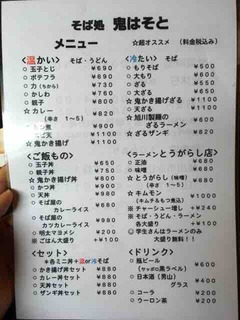 そば処 鬼はそと
メニュー
☆超オススメ (料金税込み)
<温かい> そば・うどん
○ 玉子とじ ¥690
○ ポテフラ ¥690
○ 力(ちから) ¥730
○ かしわ ¥730
○ 親子 ¥800
☆ カレー ¥880
(辛さ 1~5)
¥900
天 ¥1100
☆ 鬼かき揚げ ¥1100
<冷たい> そば
○ もりそば ¥500
○ 大もり
○ ざる ¥550
○ 大ざる
☆ 鬼かき揚げざる ¥1100
○ ¥1100
☆ 旭川製麺の
ざるラーメン
☆ ざるザンギ ¥820
<ご飯もの>
○ 玉子丼 ¥650
○ 親子丼 ¥750
☆ 鬼かき揚げ丼 ¥800
○ かつ丼 ¥900
○ 天丼 ¥980
○ そば屋の
カレーライス ¥680
○ そば屋の
カツカレーライス ¥980
○ 明太マヨメシ ¥200
※ ごはん大盛り +¥100
<ラーメンとうがらし店>
○ 正油 ¥680
○ 味噌 ¥680
☆ とうがらし(味噌) ¥780
(辛さ 1~5)
☆ キムモン ¥1000
(キムチ&もつ煮込)
※ チャーシュー増し +¥240
※ そば・うどん・ラーメン
各々大盛り +¥100
※ 学生さんはラーメンのみ
大盛り無料!!
<セット>
*各ミニ丼+温or冷そば
○ かき揚げ丼セット ¥880
○ カレー丼セット ¥880
○ 天丼セット ¥880
○ ザンギ丼セット ¥880
<ドリンク>
○ 瓶ビール ¥600
(サッポロ黒ラベル)
○ 日本酒(男山) ¥400
グラス
○ コーラ ¥200
○ ウーロン茶 ¥200